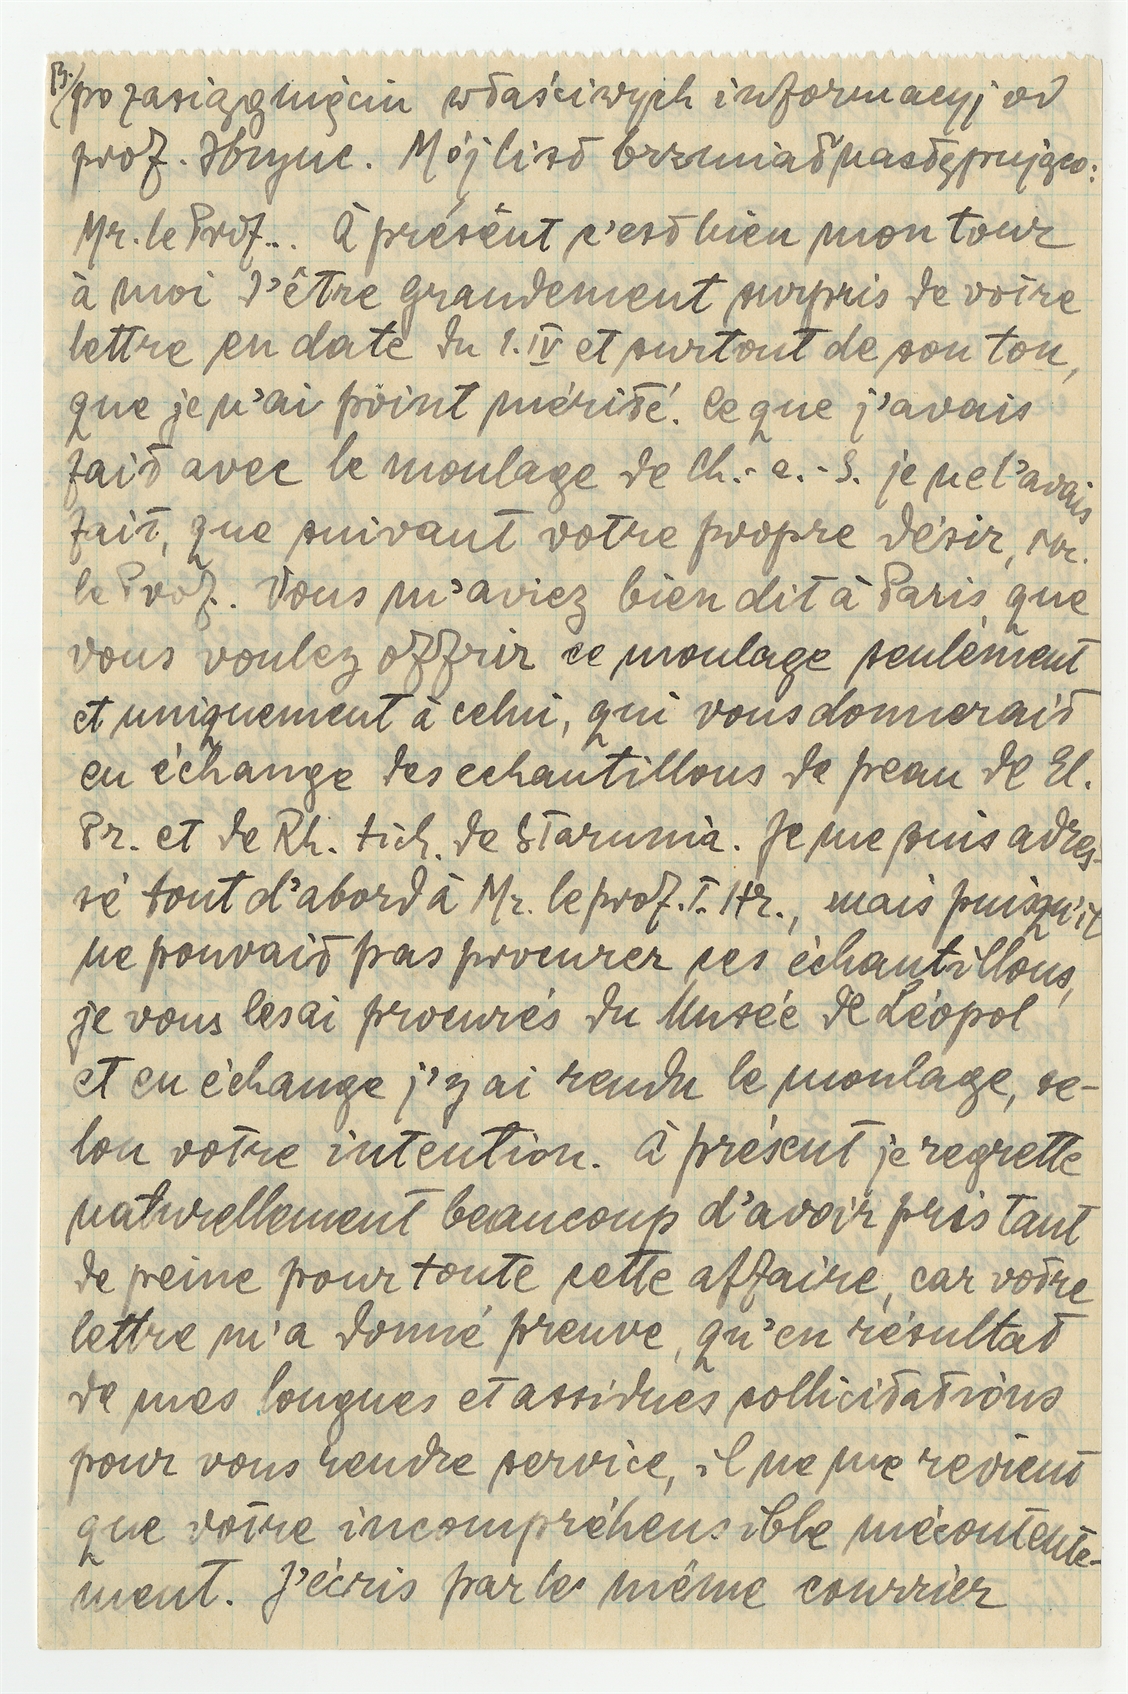 B./po zasiągnięciu właściwych informacyj od
prof. Hryne. Mój list brzmiał następująco:
Mr. le Prof... À présent c'est bien mon tour
à moi d'être grandement surpris de votre
lettre en date du 1. IV et surtout de son ton,
que je n'ai point mérité. Ce que j'avais
fait avec le moulage de Ch. - e. - S. je ne l'avais
fait, que suivant votre propre désir, Mr.
le Prof.. Vous m'aviez bien dit à Paris, que
vous voulez offrir ce moulage seulement
et uniquement à celui, qui vous donnerait
en échange des echantillons de peau de El.
Pr. et de Rh. tich. de Starunia. Je me suis adres-
sé tout d'abord à Mr. le prof. T. Hr., mais puisqu'il
ne pouvait pas procurer ces échantillons,
je vous les ai procurés du Musée de Léopol
et en échange j'y ai rendu le moulage, se-
lon votre intention. À présent je regrette
naturellement beaucoup d'avoir pris tant
de peine pour toute cette affaire, car votre
lettre m'a donné preuve, qu'en résultat
de mes longues et assidues sollicitations
pour vous rendre service, il ne me revient
que votre incompréhensible mécontente-
ment. J'écris par le même courrier